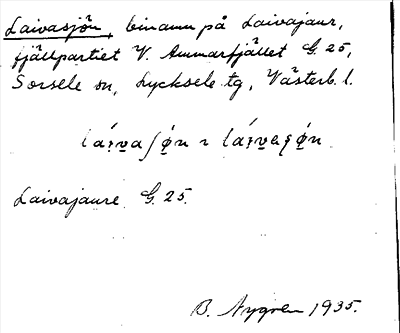 Laivasjön, binamn på Laivajaur,
fjällpartiet V. Ammarfjället G. 25,
Sorsele sn, Lycksele tg, Västerb. l.
Laivajaure G. 25.
B. Nygren 1935.